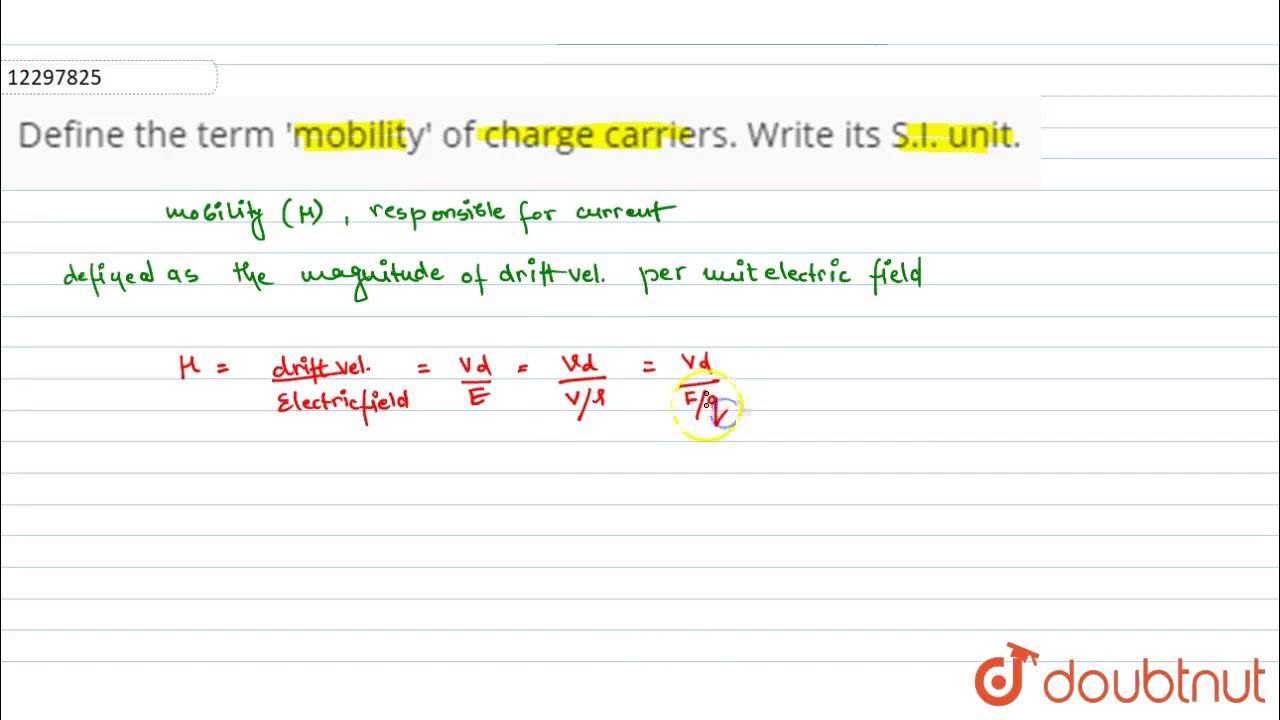 12297825
Define the term 'mobility' of charge carriers. Write its S.I. unit.
mobility (μ), responsible for current
defined as the magnitude of drift vel. per unit electric field
μ = drift vel. / Electric field = Vd / E = Vd / V/l = Vd / F/q
doubtnut